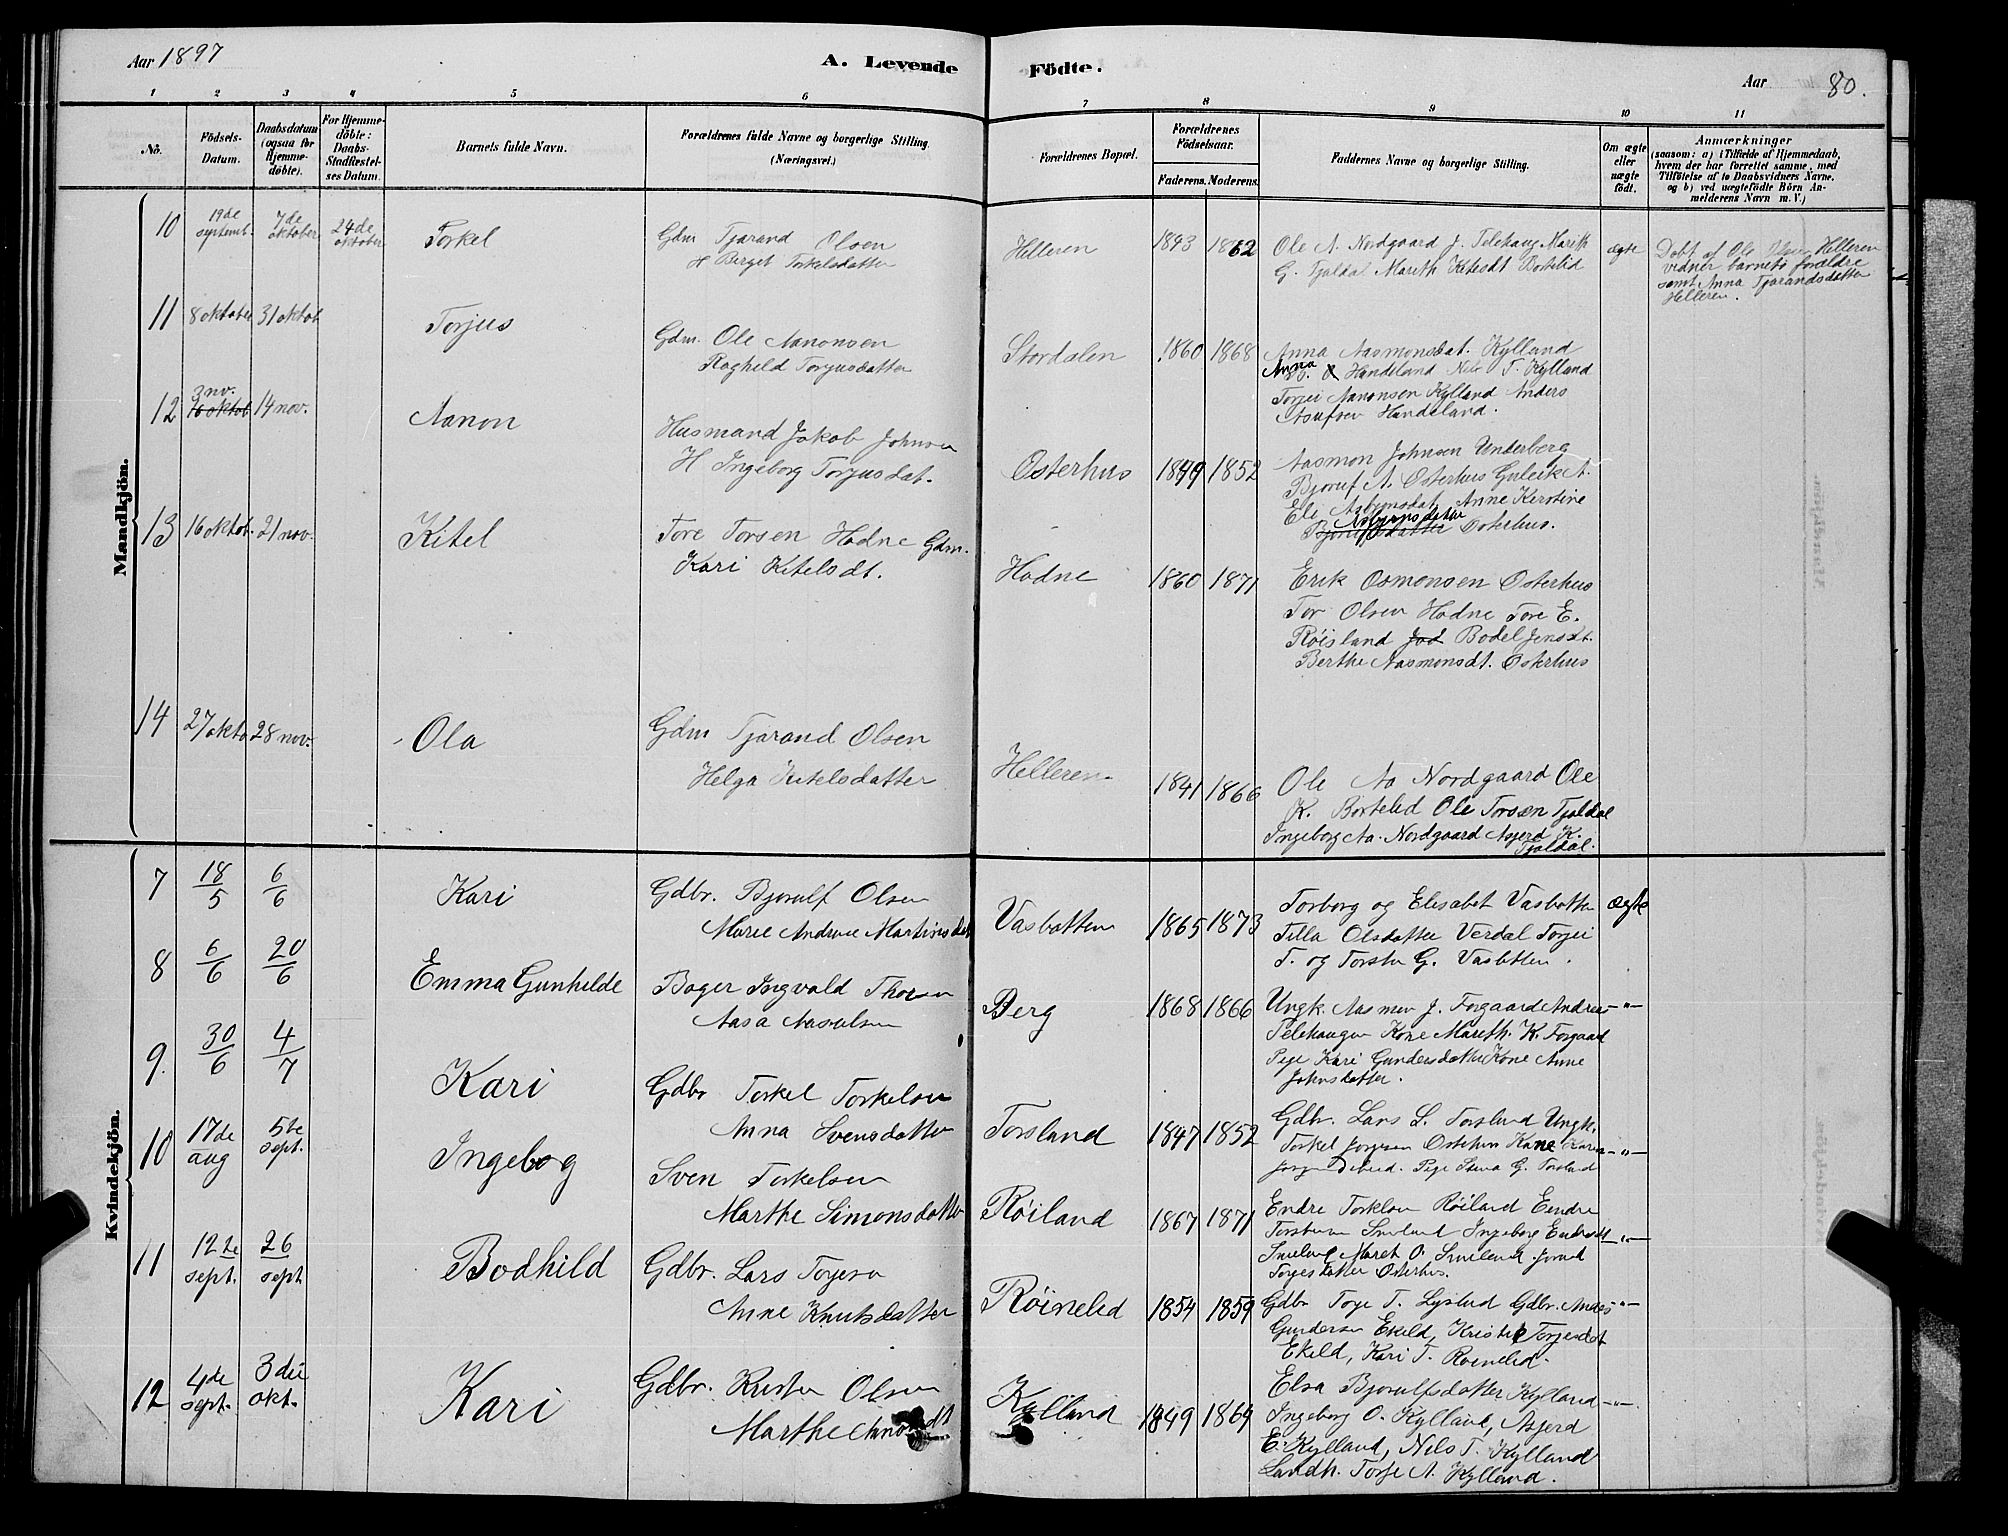 Aar 1897
A. Levende Födte.
Aar 80.
1 2 3 4 5 6 7 8 9 10 11
No.
Födsels-Datum.
Daabsdatum (ogsaa for Hjemmedöbte).
For Hjemmedöbte: Daabs-Stadfestelses Datum.
Barnets fulde Navn.
Forældrenes fulde Navne og borgerlige Stilling. (Næringsvei.)
Forældrenes Bopæl.
Forældrenes Födselsaar.
Faderens. Moderens.
Faddernes Navne og borgerlige Stilling.
Om ægte eller uægte födt.
Anmærkninger
(saasom: a) i Tilfælde af Hjemmedaab, hvem der har forrettet samme, med Tilföielse af to Daabsvidners Navne, og b) ved uægtefödte Börn Anmelderens Navn m. V.)
Mandkjön.
10 19de septemb. 7de oktober 24de oktober Torkel
Gdm Tjorand Olsen
H Berget Torkelsdatter
Helleren 1843 1862
Ole A. Nordgaard J. Telehaug Marith
G. Tjaldal Mareth Kitelsdt Bortelid
ægte
Døbt af Ole Olsen Helleren
vidner barnets forældre
samt Anna Tjorandsdatter
Helleren.
11 8 oktober 31 oktob Torjus
Gdm. Ole Aanonsen
Raghild Torjusdatter
Stordalen 1860 1868
Anna Aasmonsdat. Kylland
Anna Handeland Nils T. Kylland
Torjei Aanonsen Kylland Anders
Handeland.
12 3 nov. 16 oktob 14 nov. Aanon
Husmand Jakob Johnsen
H Ingeborg Torjusdat.
Osterhus 1849 1852
Aasmon Johnsen Underberg
Bjoruf A. Osterhus Guleik A.
Ele Asbjornsdat Anne Kerstine
Asbjornsdatter
Osterhus.
13 16 oktob. 21 nov. Kitel
Tore Torsen Hodne Gdm.
Kari Kitelsdt.
Hodne 1860 1871
Erik Osmonsen Osterhus
Tor Olsen Hodne Tore E.
Røisland Bodel Jensdt.
Berthe Aasmonsdt. Osterhus
14 27 okto 28 nov. Ola
Gdm Tjorand Olsen
Helga Kitelsdatter
Helleren 1841 1866
Ole Aa Nordgaard Ole
K. Bortelid Ole Torsen Tjaldal
Ingeborg Aa. Nordgaard Asjerd K.
Tjaldal.
Kvindekjön.
7 18/5 6/6 Kari
Gdbr. Bjorulf Olsen
Marie Andrea Martinsdat
Vasbotten 1865 1873
Torborg og Elisabet Vasbotten ægte
Tilla Olsdatter Verdal Torjei
T. og Torsten G. Vasbotten.
8 6/6 20/6 Emma Gunhilde
Bager Ingvald Thorsen
Aasa
Berg 1868 1866
Ungk. Aasmen J. Forgaard Andreas -"-
Telehaugen Kone Mareth. K. Forgaard
Pige Kari Gundersdatter Kone Anne
Johnsdatter.
9. 30/6 4/7 Kari
Gdbr Torkel Torkelsen
Anna Svensdatter
Torsland 1847 1852
Gdbr. Lars L. Torsland Ungk.
Torkel Jorgensen Kone Karen -"-
Pige G. Torsland
10 17de aug 5te sept. Ingeborg
Sven Torkelsen
Marthe Simonsdatter
Røiland 1867 1871
Endre Torkelsen Røiland Eendre
Torstensen Smeland Ingeborg Endresdt -"-
Smeland Maret O. Smeland
Torgesdatter Osterhus.
11 12te sept. 26 sept. Bodhild
Gdbr. Lars Torjesen
Anne Knutsdatter
Røinelid 1854 1859
Gdbr Torje T. Lyslid Gdbr. Andes -"-
Gundersen Ekeld, Kristi Torjesdat
Ekeld, Kari T. Roinelid.
12 4de sept. 3die okt. Kari
Gdbr. Kristen Olsen
Marthe
Kylland 1849 1869
Elsa Bjorulfsdatter Kylland -"-
Ingeborg O. Kylland, Asjerd
E. Kylland, Nils T. Kylland
Landh. Torje A. Kylland.